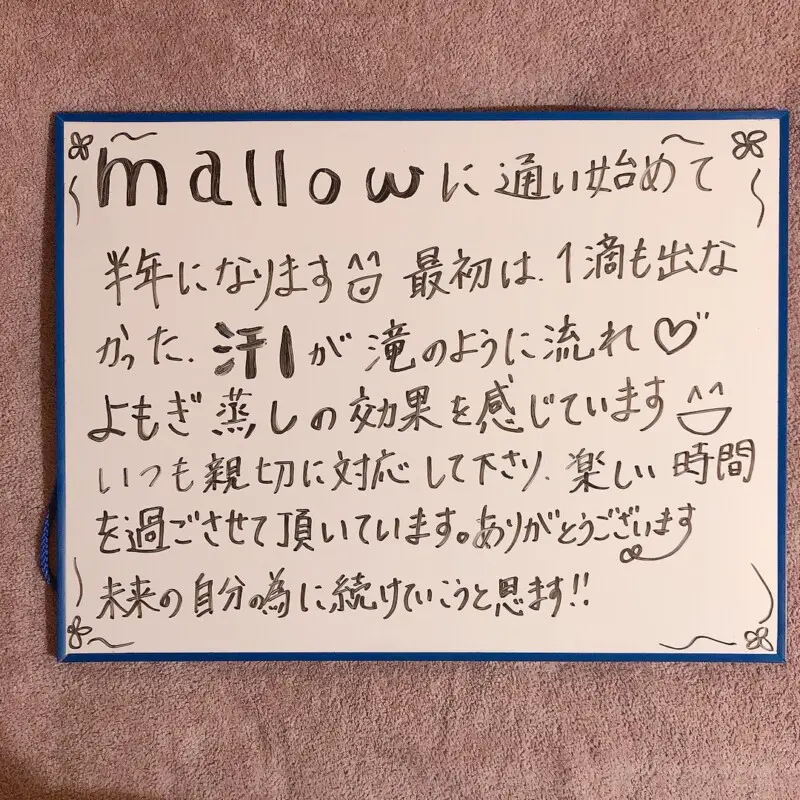 mallowに通い始めて
半年になります 最初は、1滴も出な
かった、汗!が滝のように流れ♡
よもぎ蒸しの効果を感じています
いつも親切に対応して下さり、楽しい時間
を過ごさせて頂いています。ありがとうございます
未来の自分の為に続けていこうと思います!!